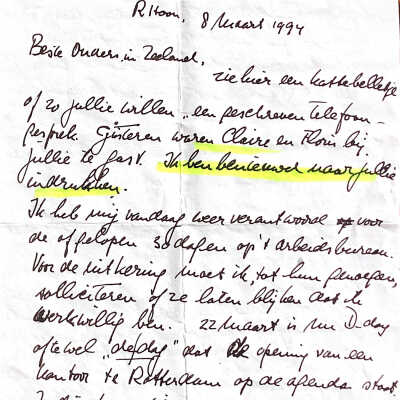 R Hoon, 8 Maart 1994
Beste Ouders, in Zeeland,
zie hier een kattebelletje
of zo jullie willen „een geschreven telefoon-
gesprek. Gisteren waren Claire en Floris bij
jullie te gast. Ik ben benieuwd naar jullie
indrukken.
Ik heb mij vandaag weer verantwoord voor
de afgelopen 30 dagen op't arbeidsbureau.
Voor de uitkering moet ik, tot hun genoegen,
solliciteren of ze laten blijken dat ik
werkwillig ben. 22 Maart is mn D-day
oftewel „de dag" dat de opening van een
kantoor te Rotterdam op de agenda staat.